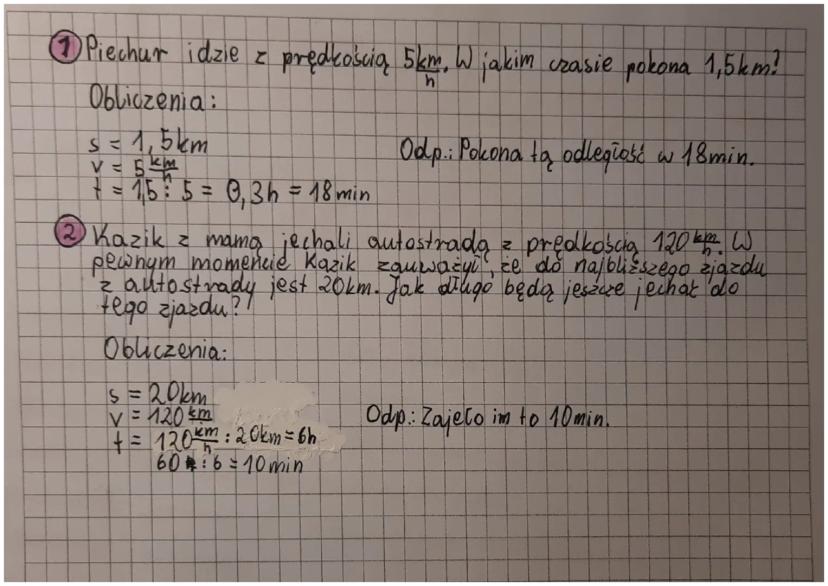 1 Piechur idzie z prędkością 5 km/h. W jakim czasie pokona 1,5km?
Obliczenia:
s = 1,5km
v = 5 km/h
t = 1,5 : 5 = 0,3h = 18 min
Odp.: Pokona tą odległość w 18min.
2 Kazik z mamą jechali autostradą z prędkością 120 km/h. W
pewnym momencie Kazik zauważył, że do najbliższego zjazdu
z autostrady jest 20km. Jak długo będą jeszcze jechać do
tego zjazdu?
Obliczenia:
s = 20km
v = 120 km/h
t = 120 km/h : 20km = 6h
60 : 6 = 10 min
Odp.: Zajęło im to 10min.